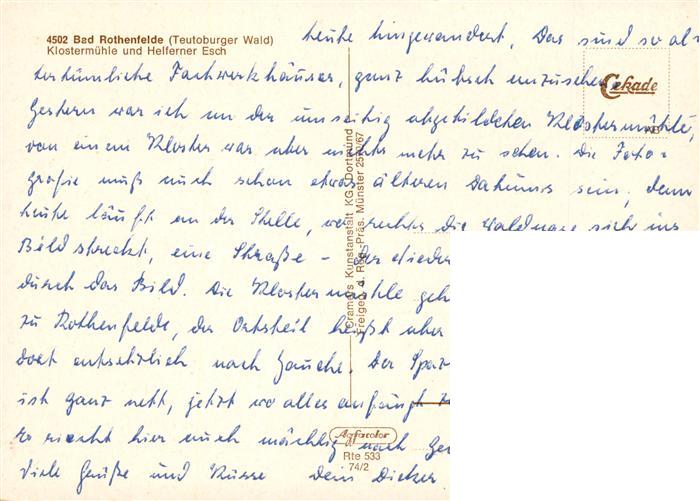 4502 Bad Rothenfelde (Teutoburger Wald)
Klostermühle und Helferner Esch
heute hingewandert. Das sind so al-
tertümliche Fachwerkhäuser, ganz hübsch anzusehen.
Cekade
Gestern war ich an der umseitig abgebildeten Klostermühle,
von einem Kloster war aber nichts mehr zu sehen. Die Foto-
grafie muß auch schon etwas älteren Datums sein, denn
heute läuft an der Stelle, wo rechts die Waldnase sich ins
Bild streckt, eine Straße - der
durch das Bild. Die Klostermühle
zu Rothenfelde, der Ortsteil heißt aber
dort entsetzlich nach Jauche. Der
ist ganz nett, jetzt wo alles anfängt
so riecht hier auch mächtig nach
Viele Grüße und Küsse Dein Dicker
Cramers Kunstanstalt KG, Dortmund
Freigeg. d. Reg.-Präs. Münster
Agfacolor
Rte 533
74/2